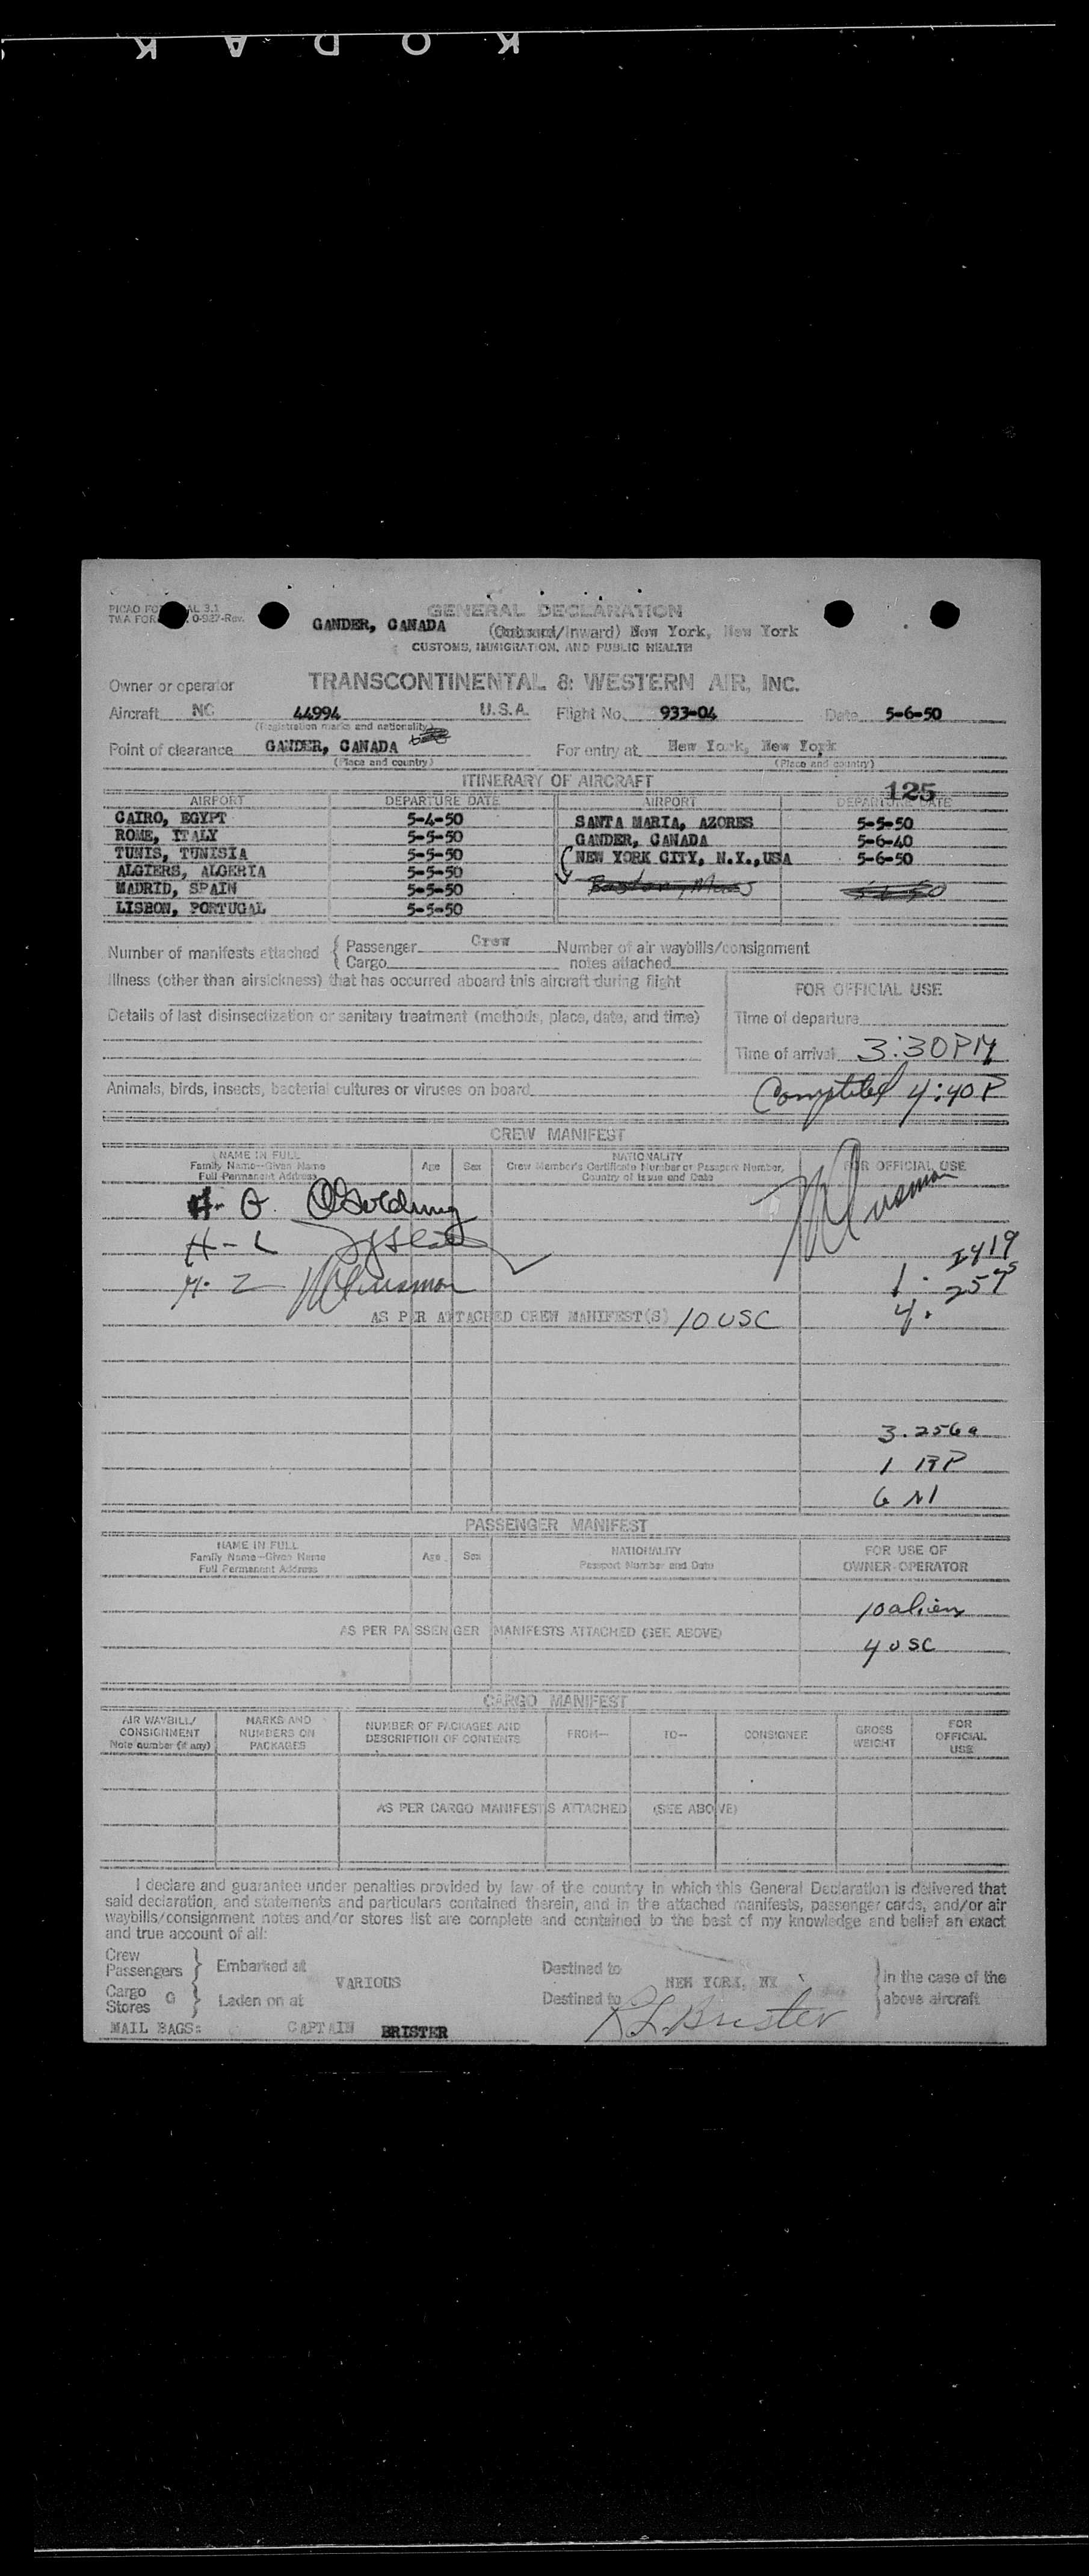 KODAK
PICAO FO AL 3.1
TWA FOR 0-927-Rev.
GENERAL DECLARATION
GANDER, CANADA (Outward/Inward) New York, New York
CUSTOMS, IMMIGRATION, AND PUBLIC HEALTH
Owner or operator TRANSCONTINENTAL & WESTERN AIR, INC.
Aircraft NC 44994 U.S.A. Flight No. 933-04 Date 5-6-50
(Registration marks and nationality)
Point of clearance GANDER, CANADA For entry at New York, New York
(Place and country) (Place and country)
ITINERARY OF AIRCRAFT
125
AIRPORT DEPARTURE DATE AIRPORT DEPARTURE DATE
CAIRO, EGYPT 5-4-50 SANTA MARIA, AZORES 5-5-50
ROME, ITALY 5-5-50 GANDER, CANADA 5-6-40
TUNIS, TUNISIA 5-5-50 NEW YORK CITY, N.Y.,USA 5-6-50
ALGIERS, ALGERIA 5-5-50
MADRID, SPAIN 5-5-50 Boston, Mass
LISBON, PORTUGAL 5-5-50
Number of manifests attached { Passenger Crew Number of air waybills/consignment
{ Cargo notes attached
Illness (other than airsickness) that has occurred aboard this aircraft during flight
FOR OFFICIAL USE
Details of last disinsectization or sanitary treatment (methods, place, date, and time)
Time of departure
Time of arrival 3:30PM
Animals, birds, insects, bacterial cultures or viruses on board
Completed 4:40P
CREW MANIFEST
NAME IN FULL
Family Name--Given Name
Full Permanent Address
Age Sex
NATIONALITY
Crew Member's Certificate Number or Passport Number,
Country of Issue and Date
FOR OFFICIAL USE
H. G.
H - L
H. Z
1.
4.
AS PER ATTACHED CREW MANIFEST(S) 10 USC
3.256a
1 RP
6 NI
PASSENGER MANIFEST
NAME IN FULL
Family Name--Given Name
Full Permanent Address
Age Sex
NATIONALITY
Passport Number and Date
FOR USE OF
OWNER-OPERATOR
10 alien
AS PER PASSENGER MANIFESTS ATTACHED (SEE ABOVE)
4 USC
CARGO MANIFEST
AIR WAYBILL/
CONSIGNMENT
Note number (if any)
MARKS AND
NUMBERS ON
PACKAGES
NUMBER OF PACKAGES AND
DESCRIPTION OF CONTENTS
FROM-- TO-- CONSIGNEE
GROSS
WEIGHT
FOR
OFFICIAL
USE
AS PER CARGO MANIFESTS ATTACHED (SEE ABOVE)
I declare and guarantee under penalties provided by law of the country in which this General Declaration is delivered that
said declaration, and statements and particulars contained therein, and in the attached manifests, passenger cards, and/or air
waybills/consignment notes and/or stores list are complete and contained to the best of my knowledge and belief an exact
and true account of all:
Crew
Passengers } Embarked at Destined to
VARIOUS NEW YORK, NY } in the case of the
Cargo
Stores } Laden on at Destined to above aircraft
R L Brister
MAIL BAGS: CAPTAIN BRISTER